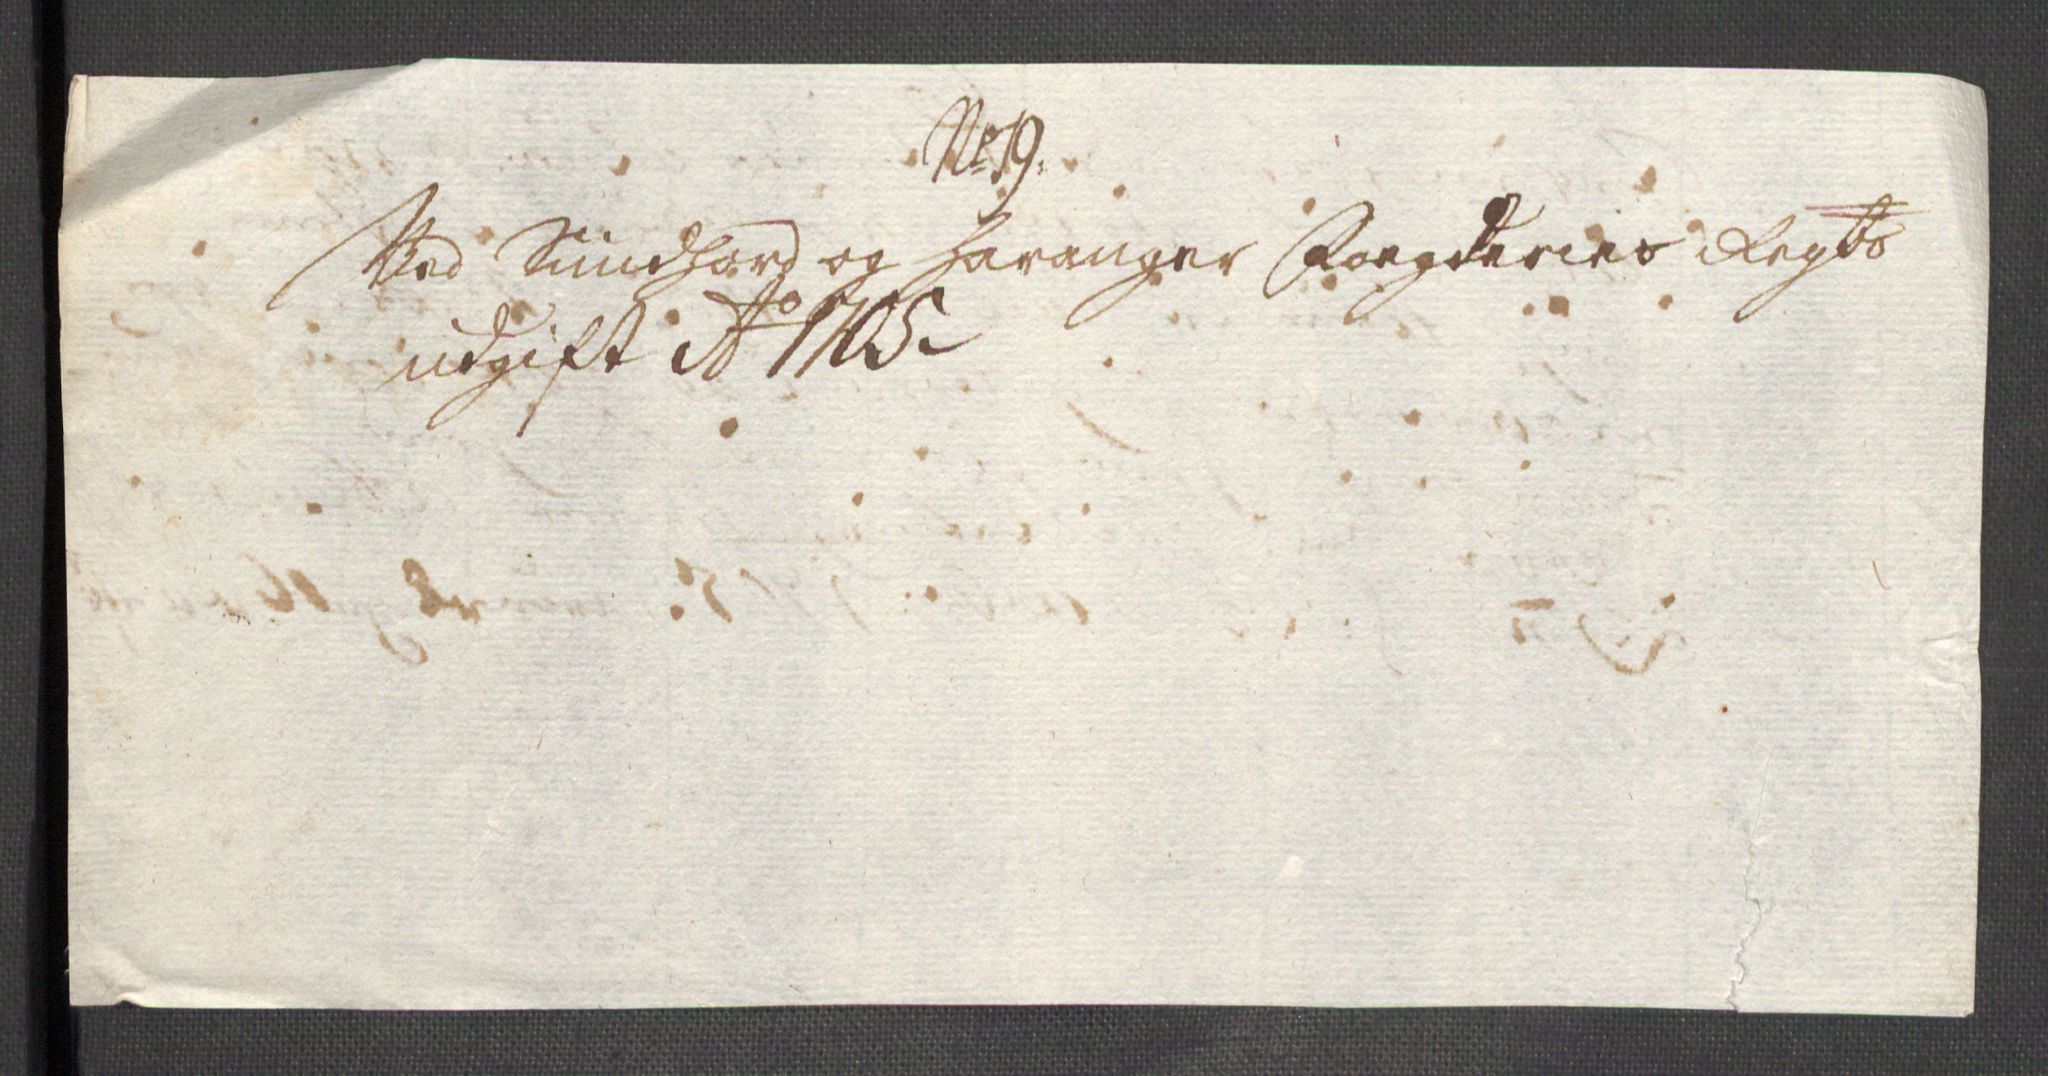 No 19.
Ved Sundhord og Haranger Foegderies Regbs
udgift Ao 1705.